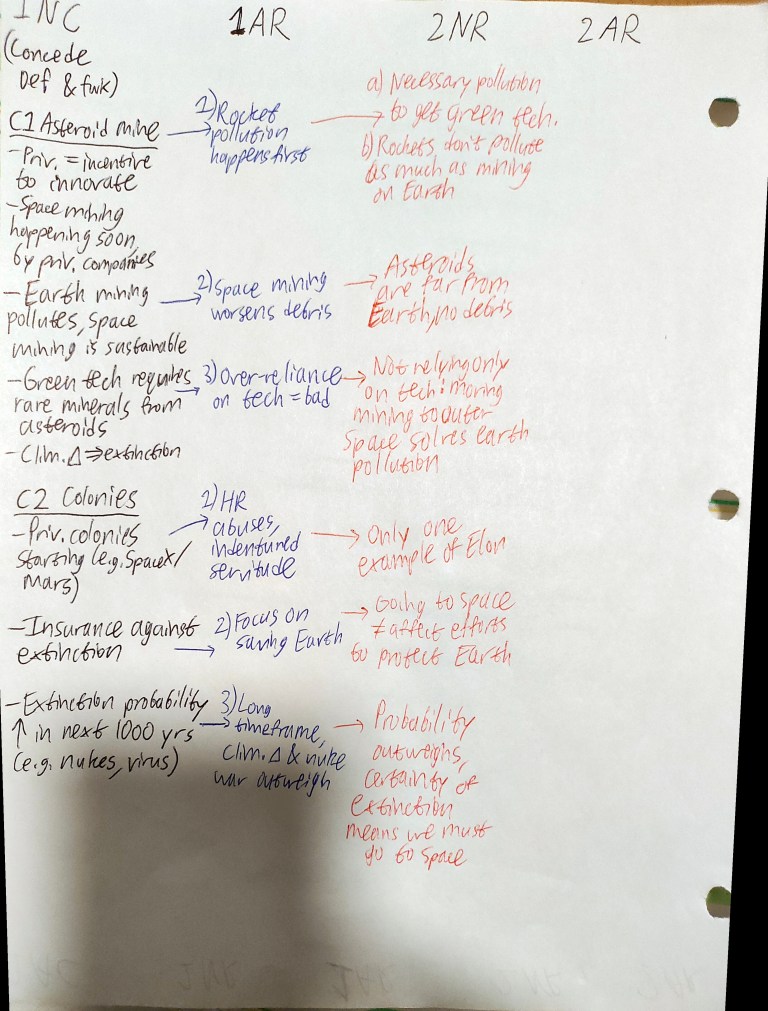 1NC
1AR
2NR
2AR
(Concede
Def & fwk)
C1 Asteroid mine
-Priv. = incentive
to innovate
-Space mining
happening soon,
by priv. companies
-Earth mining
pollutes, space
mining is sustainable
-Green tech requires
rare minerals from
asteroids
-Clim. Δ ⇒ extinction
C2 Colonies
-Priv. colonies
starting (e.g. SpaceX/
Mars)
-Insurance against
extinction
-Extinction probability
↑ in next 1000 yrs
(e.g. nukes, virus)
1) Rocket
pollution
happens first
2) Space mining
worsens debris
3) Over-reliance
on tech = bad
1) HR
abuses,
indentured
servitude
2) Focus on
saving Earth
3) Long
timeframe,
clim. Δ & nuke
war outweigh
a) Necessary pollution
to get green tech.
b) Rockets don't pollute
as much as mining
on Earth
Asteroids
are far from
Earth, no debris
Not relying only
on tech: moving
mining to outer
space solves earth
pollution
Only one
example of Elon
Going to space
≠ affect efforts
to protect Earth
Probability
outweighs,
certainty of
extinction
means we must
go to space